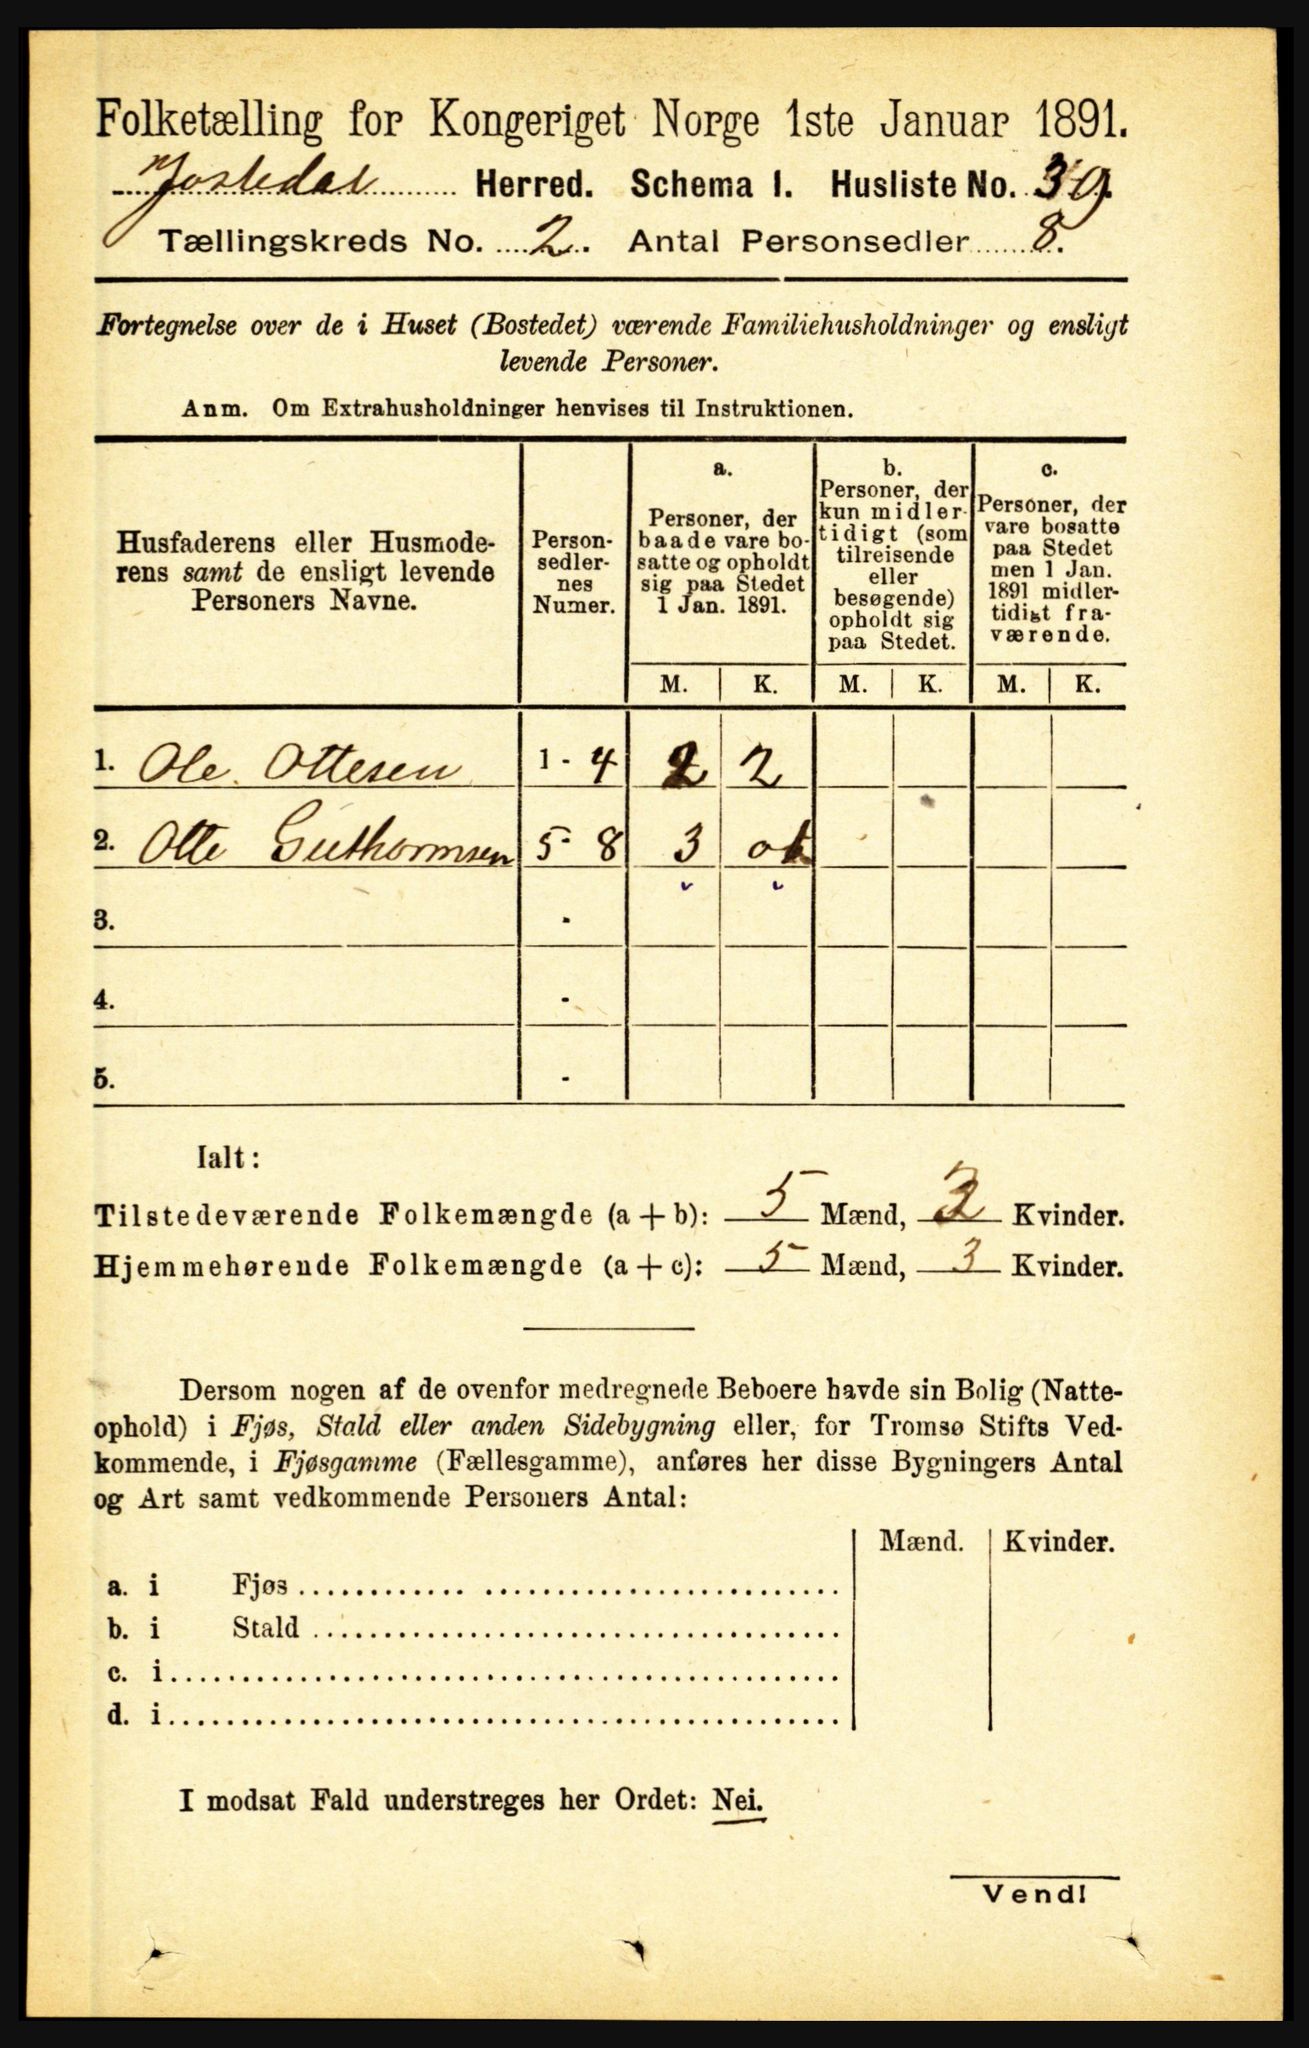 Folketælling for Kongeriget Norge 1ste Januar 1891.
Jostedal Herred. Schema 1. Husliste No. 39.
Tællingskreds No. 2. Antal Personsedler 8.
Fortegnelse over de i Huset (Bostedet) værende Familiehusholdninger og ensligt
levende Personer.
Anm. Om Extrahusholdninger henvises til Instruktionen.
Husfaderens eller Husmode-
rens samt de ensligt levende
Personers Navne.
Person-
sedler-
nes
Numer.
a.
Personer, der
baade vare bo-
satte og opholdt
sig paa Stedet
1 Jan. 1891.
b.
Personer, der
kun midler-
tidigt (som
tilreisende
eller
besøgende)
opholdt sig
paa Stedet.
c.
Personer, der
vare bosatte
paa Stedet
men 1 Jan.
1891 midler-
tidigt fra-
værende.
M. K. M. K. M. K.
1. Ole Ottesen 1 - 4 2 2
2. Otte Guthormsen 5 - 8 3
3. -
4. -
5. -
Ialt:
Tilstedeværende Folkemængde (a + b): 5 Mænd, 3 Kvinder.
Hjemmehørende Folkemængde (a + c): 5 Mænd, 3 Kvinder.
Dersom nogen af de ovenfor medregnede Beboere havde sin Bolig (Natte-
ophold) i Fjøs, Stald eller anden Sidebygning eller, for Tromsø Stifts Ved-
kommende, i Fjøsgamme (Fællesgamme), anføres her disse Bygningers Antal
og Art samt vedkommende Personers Antal:
Mænd. Kvinder.
a. i Fjøs
b. i Stald
c. i
d. i
I modsat Fald understreges her Ordet: Nei.
Vend!